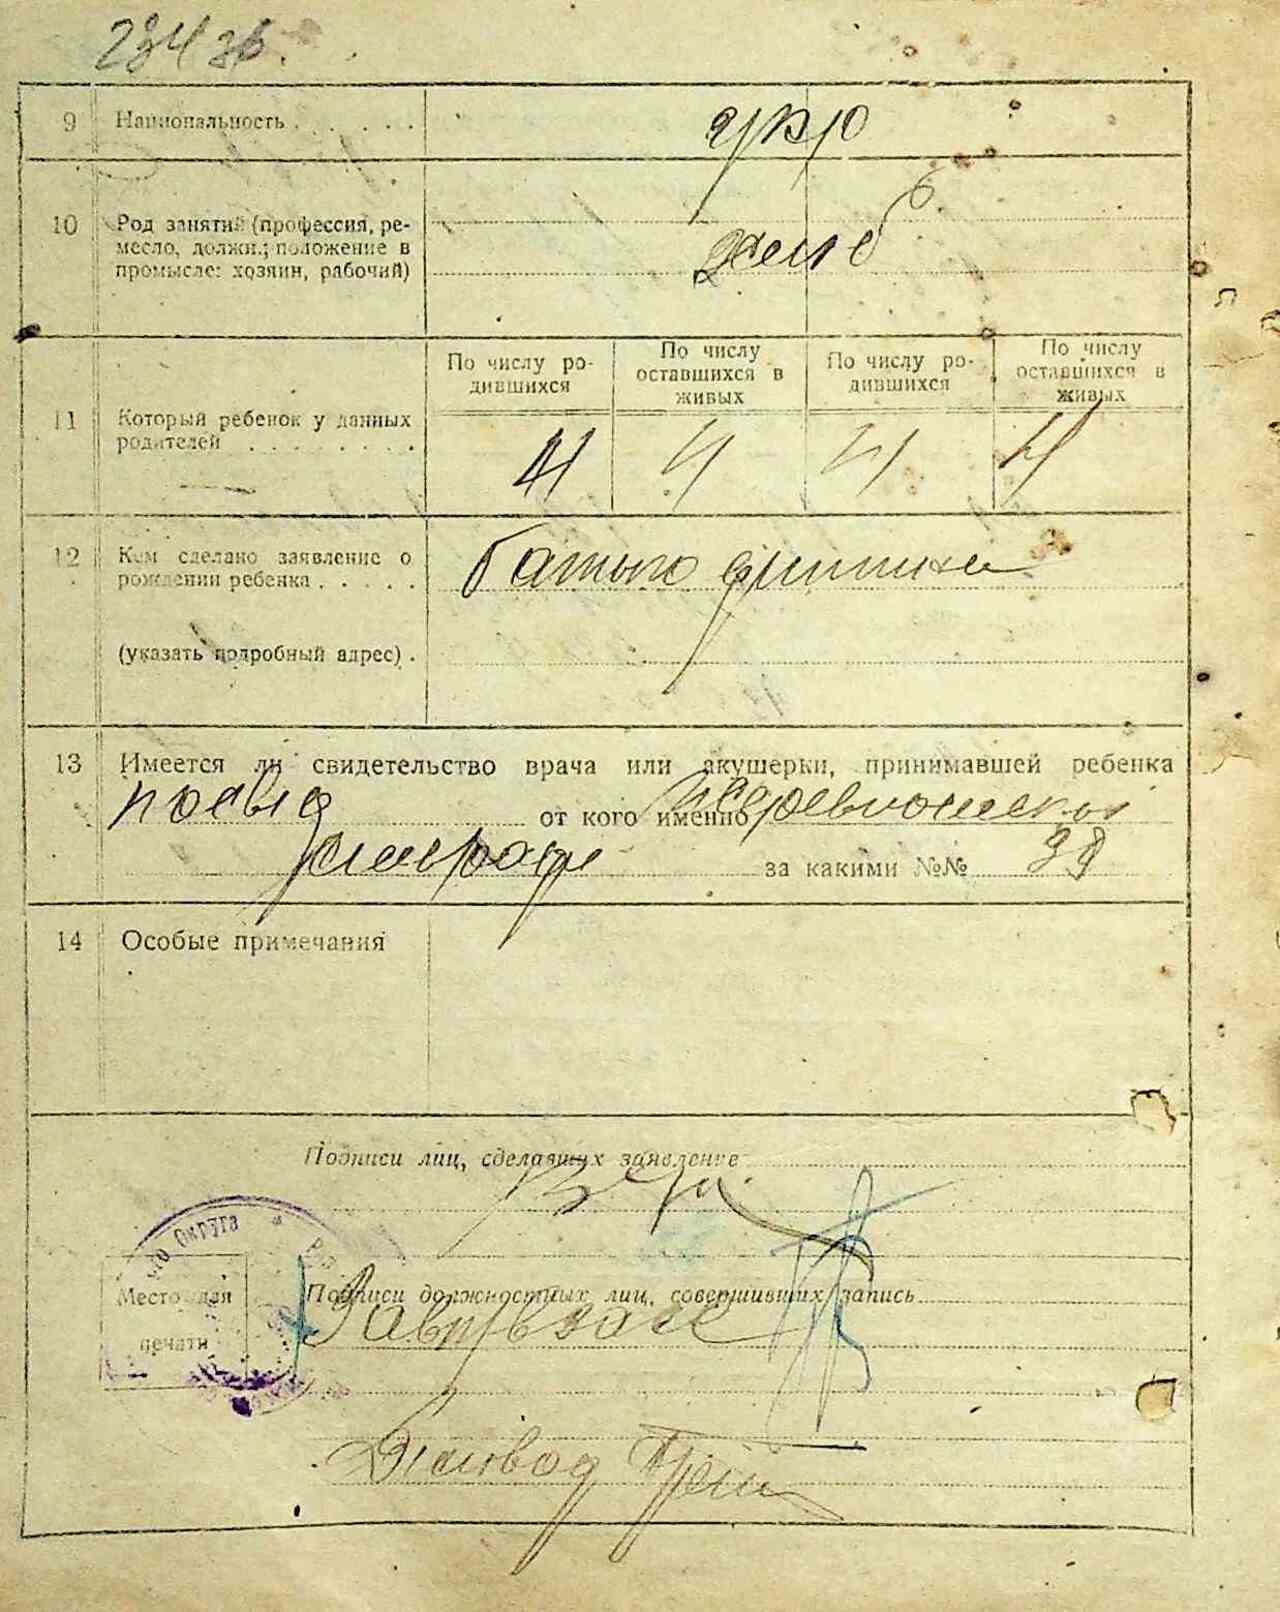 234 зв.
9 Национальность . . . . . . укр
10 Род занятий (профессия, ре-
месло, должн.; положение в
промысле: хозяин, рабочий)
хліб
По числу ро-
дившихся
По числу
оставшихся в
живых
По числу ро-
дившихся
По числу
оставшихся в
живых
11 Который ребенок у данных
родителей . . . . . . . .
4 4 4 4
12 Кем сделано заявление о
рождении ребенка . . . . .
батько дитини
(указать подробный адрес) .
13 Имеется ли свидетельство врача или акушерки, принимавшей ребенка
посвід от кого именно
сільради за какими №№ 39
14 Особые примечания
Подписи лиц, сделавших заявление
Округа
Место для
печати
Подписи должностных лиц, совершивших запись
Діловод